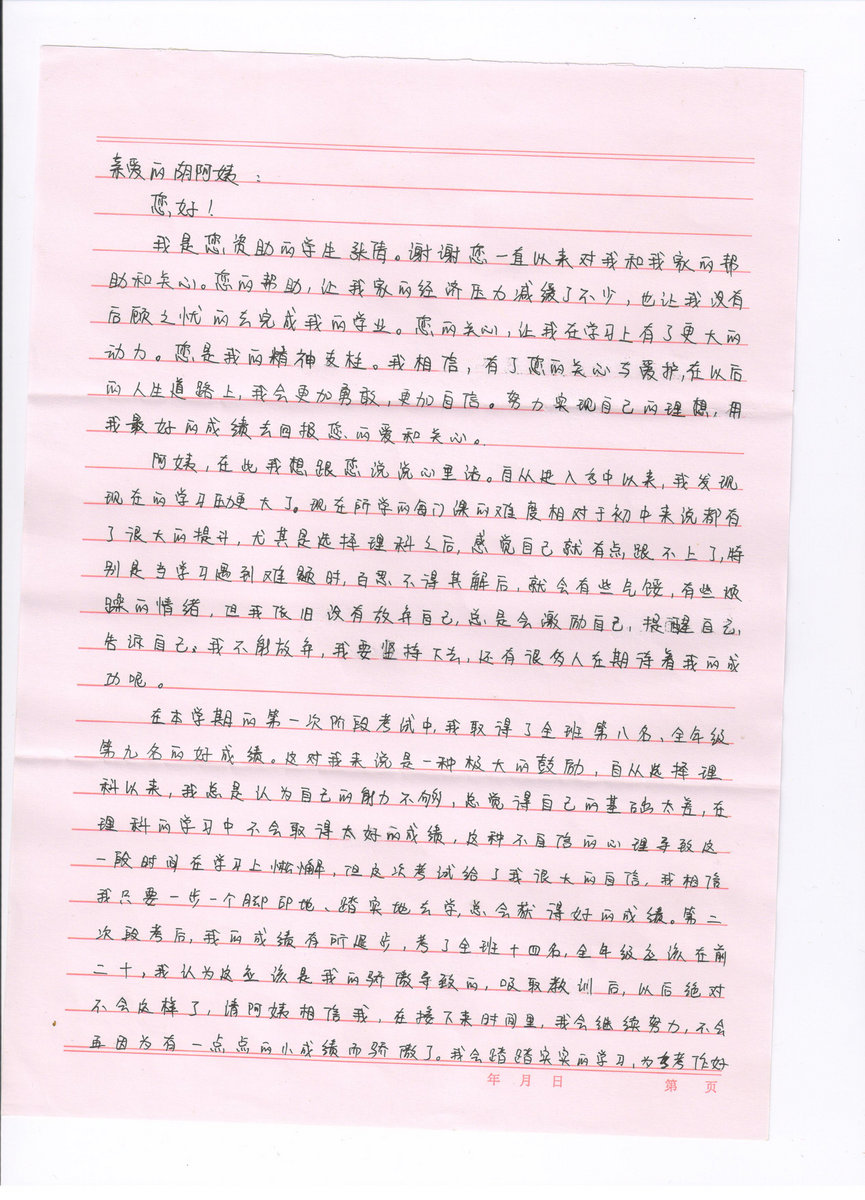 亲爱的阴阿姨：
您好！
我是您资助的学生张倩。谢谢您一直以来对我和我家的帮
助和关心。您的帮助，让我家的经济压力减缓了不少，也让我没有
后顾之忧的去完成我的学业。您的关心，让我在学习上有了更大的
动力。您是我的精神支柱。我相信，有了您的关心与爱护，在以后
的人生道路上，我会更加勇敢，更加自信。努力实现自己的理想，用
我最好的成绩去回报您的爱和关心。
阿姨，在此我想跟您说说心里话。自从进入高中以来，我发现
现在的学习压力更大了。现在所学的每门课的难度相对于初中来说都有
了很大的提升，尤其是选择理科之后，感觉自己就有点跟不上了，特
别是当学习遇到难题时，百思不得其解后，就会有些气馁，有些烦
躁的情绪，但我依旧没有放弃自己，总是会激励自己，提醒自己，
告诉自己：我不能放弃，我要坚持下去，还有很多人在期待着我的成
功呢。
在本学期的第一次阶段考试中，我取得了全班第八名、全年级
第九名的好成绩。这对我来说是一种极大的鼓励，自从选择理
科以来，我总是认为自己的能力不够，总觉得自己的基础太差，在
理科的学习中不会取得太好的成绩，这种不自信的心理导致这
一段时间在学习上懒懈，但这次考试给了我很大的自信，我相信
我只要一步一个脚印地、踏实地去学，总会获得好的成绩。第二
次段考后，我的成绩有所退步，考了全班十四名，全年级应该在前
二十，我认为这应该是我的骄傲导致的，吸取教训后，以后绝对
不会这样了，请阿姨相信我，在接下来时间里，我会继续努力，不会
再因为有一点点的小成绩而骄傲了。我会踏踏实实的学习，为高考作好
年 月 日 第 页